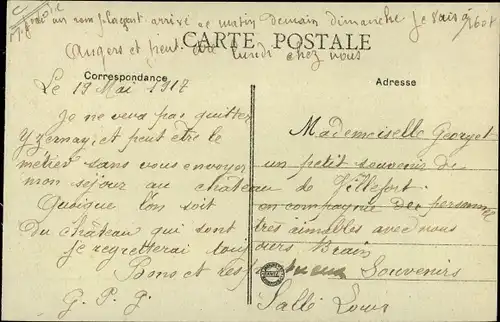 arrivé ce matin demain dimanche je vais à
Angers et peut être lundi chez vous
CARTE POSTALE
Correspondance
Adresse
Le 19 Mai 1917
Je ne veux pas quitter
Yzernay, et peut être le
métier sans vous envoyer
mon séjour au château
Quoique l'on soit
du château qui sont
je regretterai toujours
Bons et
G. P. G.
Mademoiselle Georget
un petit souvenir de
de Villefort.
en compagnie des personnes
très aimables avec nous
Souvenirs
Sallé Louis